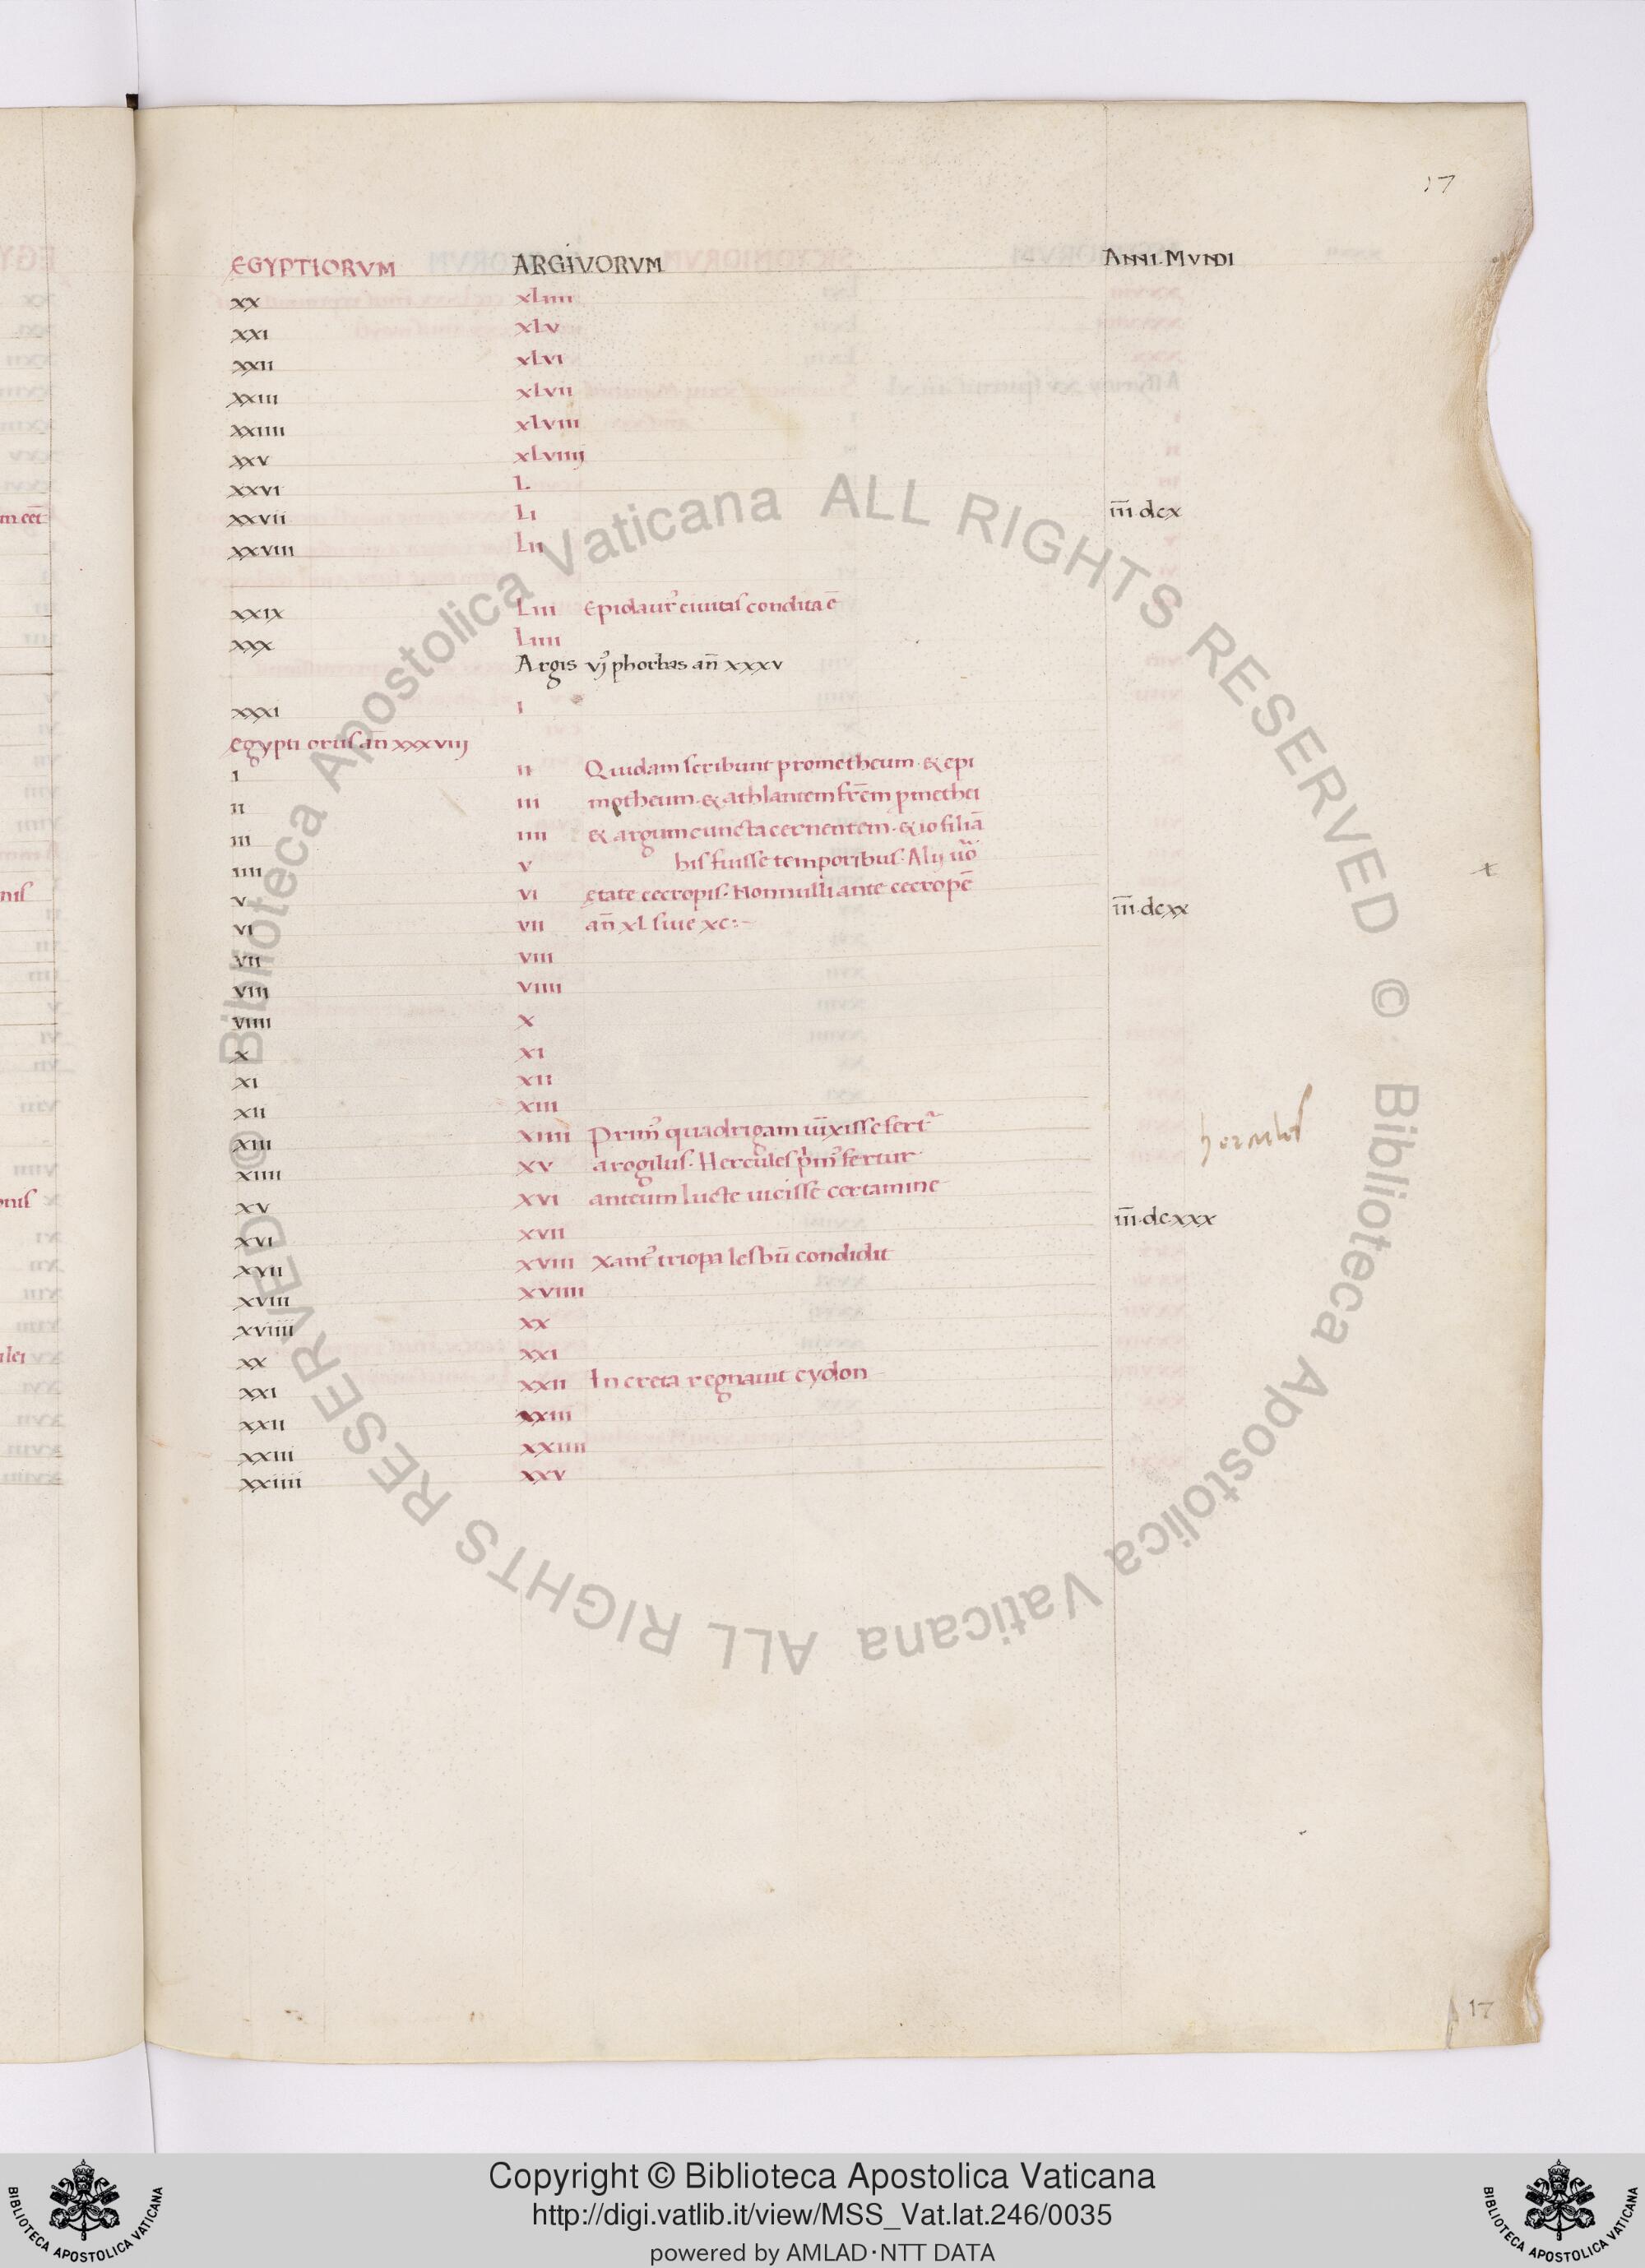 17
EGYPTIORVM ARGIVORVM ANNI MVNDI
xx xLiiii
xxi xLv
xxii xLvi
xxiii xLvii
xxiiii xLviii
xxv xLviiij
xxvi L
xxvii Li iii̅ dcx
xxviii Lii
xxix Liii Epidaurꝰ ciuitas condita ē
xxx Liiii
Argis vj phorbas an̄ xxxv
xxxi i
Egypti orus an̄ xxxviij
i ii Quidam scribunt prometheum · & epi
ii iii motheum · & athlantem frēm pmethei
iii iiii & argum cuncta cernentem · & io filiā
iiii v his fuisse temporibus · Alij uō
v vi etate cecropis · Nonnulli ante cecropē iii̅ dcxx
vi vii an̄ xl siue xc :-
vii viii
viii viiii
viiii x
x xi
xi xii
xii xiii
xiii xiiii Primꝰ quadrigam iūxisse fert᷑ hercules
xiiii xv arogilus · Hercules pmꝰ fertur
xv xvi anteum lucte uicisse certamine
xvi xvii iii̅ dcxxx
xvii xviii Xantꝰ triopa lesbū condidit
xviii xviiii
xviiii xx
xx xxi
xxi xxii In creta regnauit cydon
xxii xxiii
xxiii xxiiii
xxiiii xxv
17
© Biblioteca Apostolica Vaticana ALL RIGHTS RESERVED
© Biblioteca Apostolica Vaticana ALL RIGHTS RESERVED
Copyright © Biblioteca Apostolica Vaticana
http://digi.vatlib.it/view/MSS_Vat.lat.246/0035
powered by AMLAD·NTT DATA
BIBLIOTECA APOSTOLICA VATICANA
BIBLIOTECA APOSTOLICA VATICANA